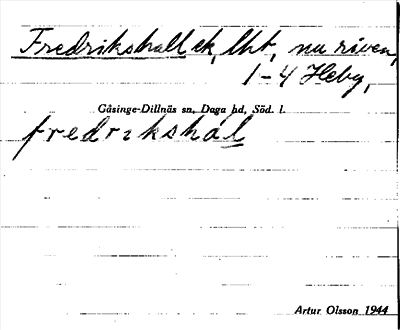 Fredrikshall ek, lht, nu riven,
1-4 Heby,
Gåsinge-Dillnäs sn, Daga hd, Söd. l.
fredrikshal
Artur Olsson 1944